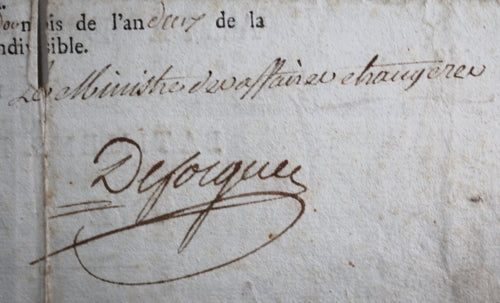 mois de l'an deux de la
indivisible.
Le Ministre des affaires etrangeres
Deforgues